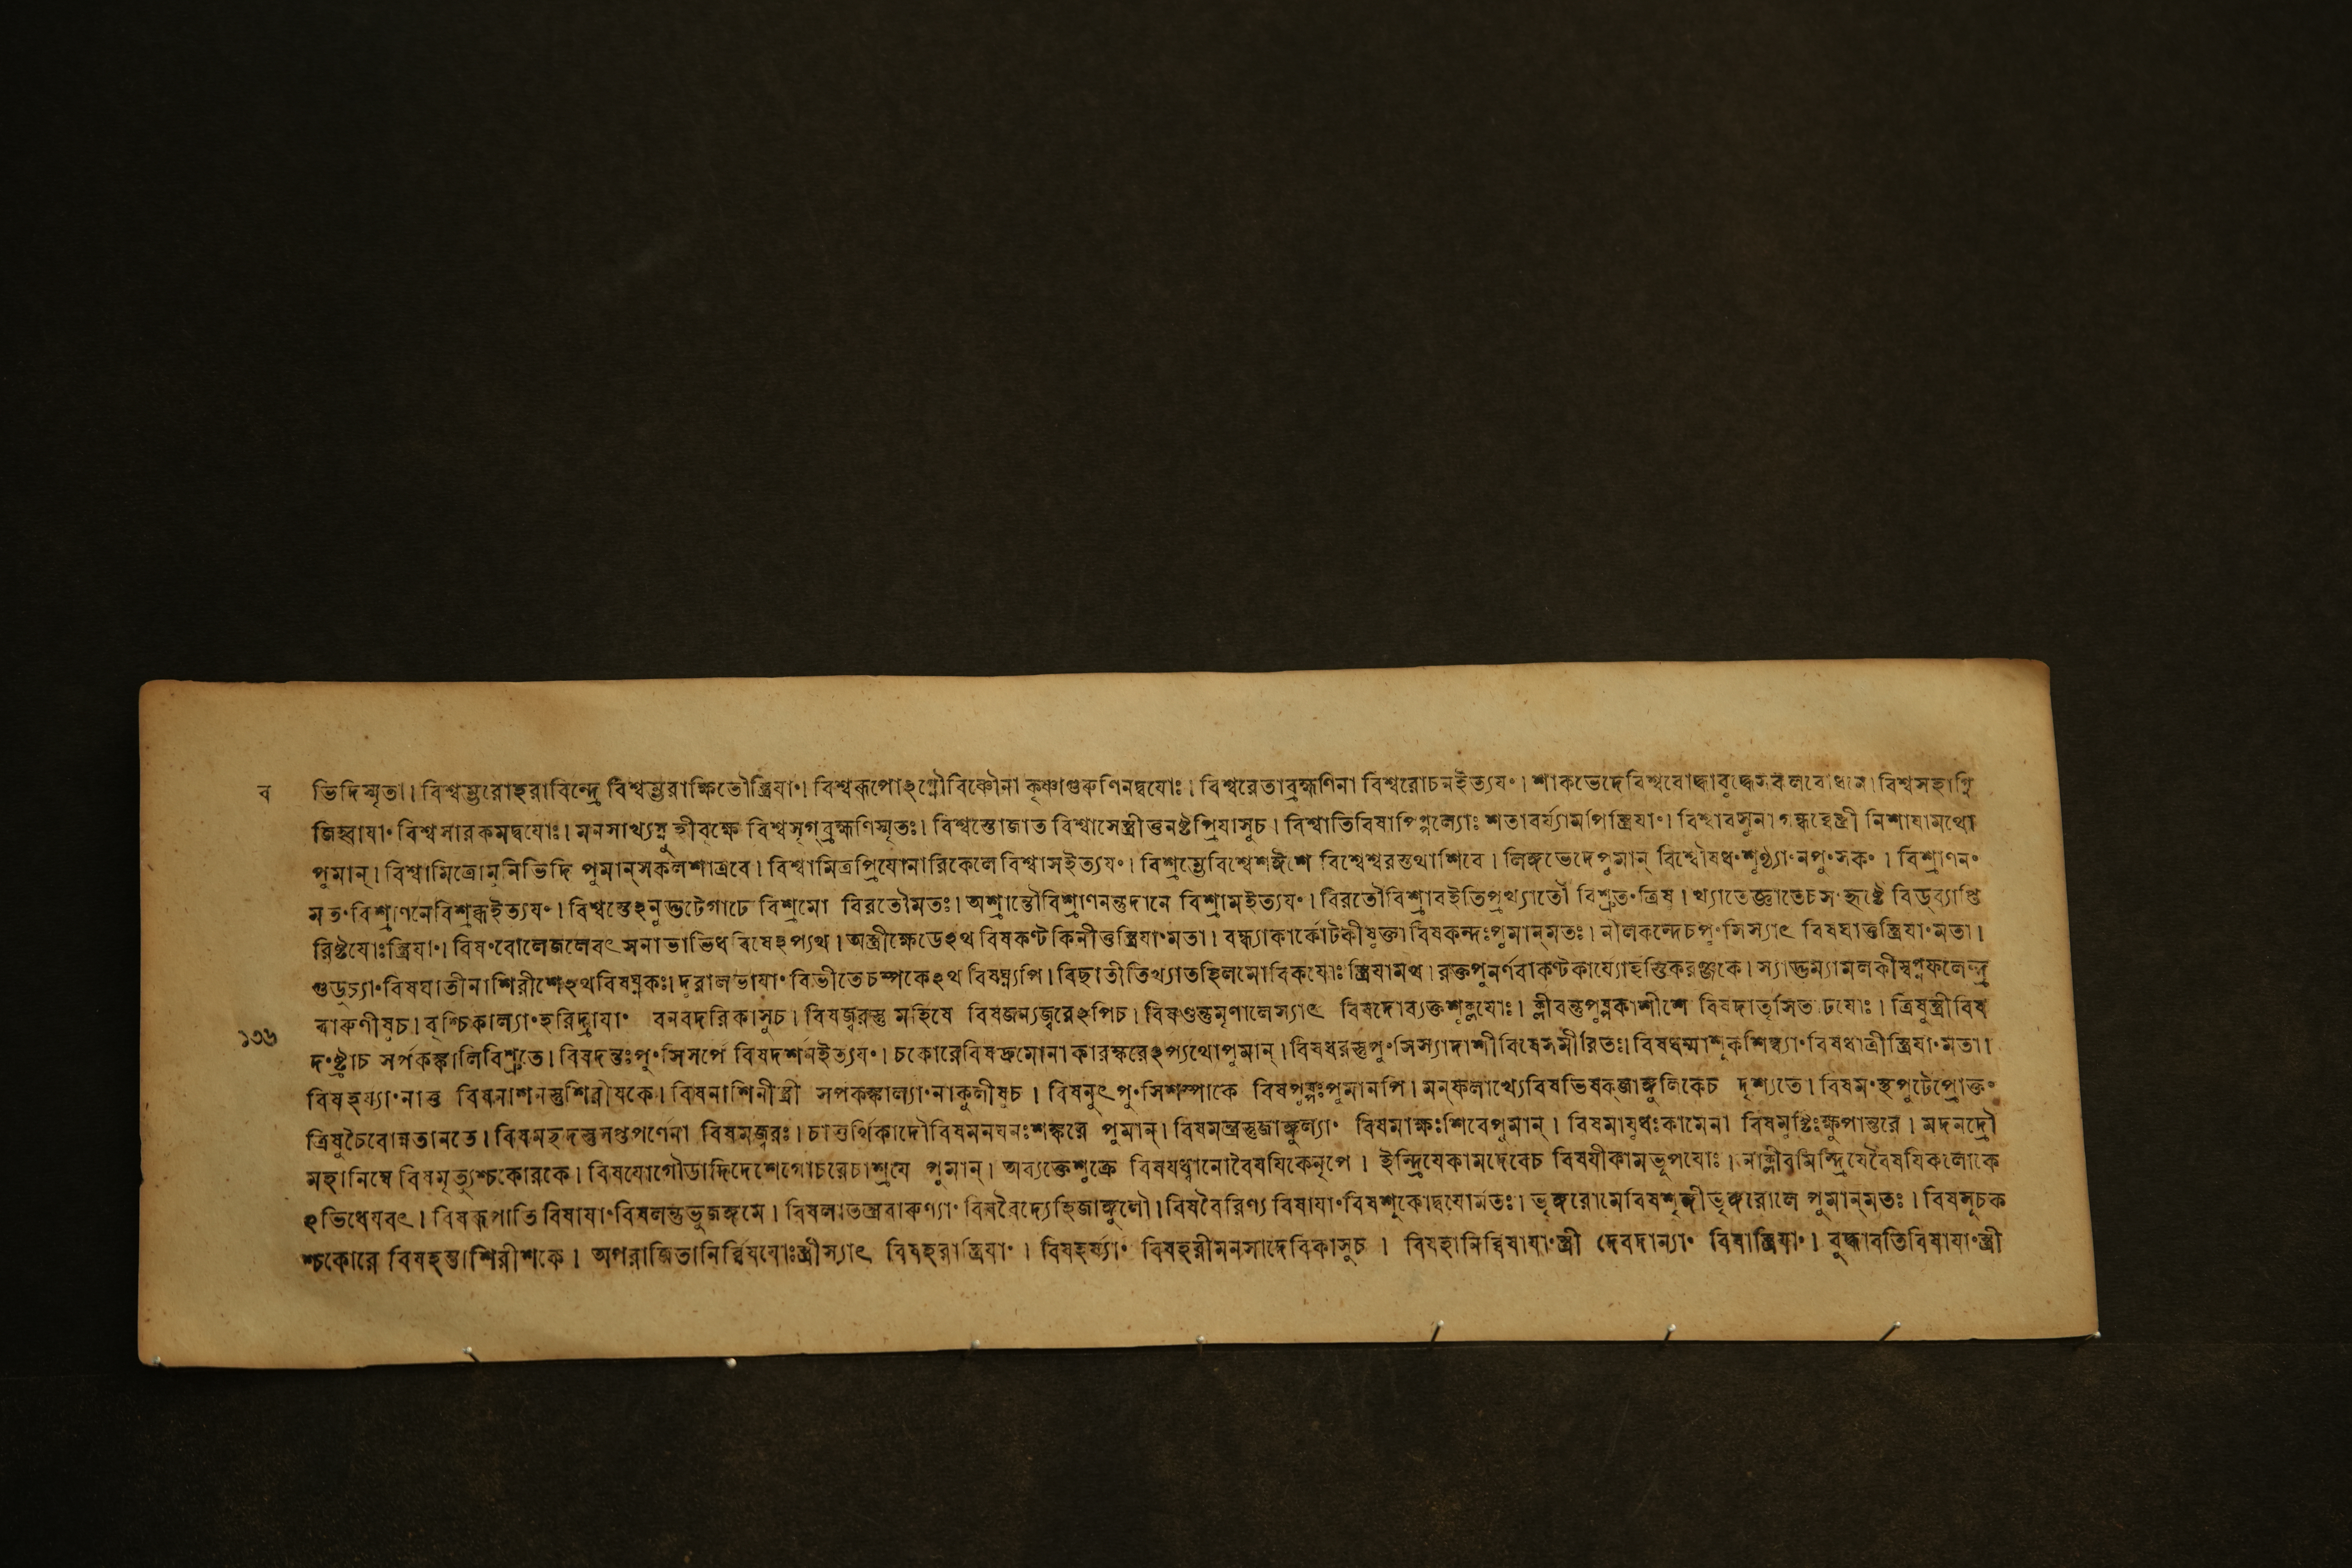 ব
ভিদিস্মৃতা। বিশ্বম্ভরোহরাবিন্দ্রে বিশ্বম্ভরাক্ষিতৌস্ত্রিযাং। বিশ্বরূপোঽগ্নৌবিষ্ণৌনা কৃষ্ণাগুরুণিনদ্বযোঃ। বিশ্বরেতাব্রহ্মণিনা বিশ্বরোচনইত্যযং। শাকভেদেবিশ্ববোদ্ধাবুদ্ধেসকলবোধনে। বিশ্বসহাগ্নি
জিহ্বাযাং বিশ্বসারকমদ্বযোঃ। মনসাখ্যস্নুহীবৃক্ষে বিশ্বসৃগ্ব্রহ্মণিস্মৃতঃ। বিশ্বস্তোজাত বিশ্বাসেস্ত্রীত্তনষ্টপ্রিযাসুচ। বিশ্বাতিবিষাপিপ্পল্যোঃ শতাবর্য্যামপিস্ত্রিযাং। বিশ্বাবসুনাগন্ধর্বেস্ত্রী নিশাযামথো
পুমান্। বিশ্বামিত্রোমুনিভিদি পুমান্সকলশাত্রবে। বিশ্বামিত্রপ্রিযোনারিকেলে বিশ্বাসইত্যযং। বিশ্রম্ভেবিশ্বেশঈশে বিশ্বেশ্বরস্তথাশিবে। লিঙ্গভেদেপুমান্ বিশ্বৌষধং শূণ্ঠ্যাং নপুংসকং। বিশ্রাণনং
মতংবিশ্রাণনেবিশ্রব্ধইত্যযং। বিশ্বস্তেঽনুদ্ভটেগাঢে বিশ্রমো বিরতৌমতঃ। অশ্রান্তৌবিশ্রাণনন্তুদানে বিশ্রামইত্যযং। বিরতৌবিশ্রাবইতিপ্রথ্যাতৌ বিশ্রুতংত্রিষু। খ্যাতেজ্ঞাতেচসংহৃষ্টে বিড্ব্যাপ্তি
রিষ্টযোঃস্ত্রিযাং। বিষংবোলেজলেবৎসনাভাভিধবিষেঽপ্যথ। অস্ত্রীক্ষেডেঽথ বিষকণ্টকিনীত্তস্ত্রিযাংমতা। বন্ধ্যাকার্কোটকীষূক্তা বিষকন্দঃপুমান্মতঃ। নীলকন্দেচপুংসিস্যাৎ বিষঘাত্তস্ত্রিযাংমতা।
গুডূচ্যাংবিষঘাতীনাশিরীশেঽথবিষঘ্নকঃ। দুরালভাযাংবিভীতেচম্পকেঽথ বিষঘ্ন্যপি। বিছাতীতিখ্যাতহিলমোবিকযোঃ স্ত্রিযামথ। রক্তপুনর্ণবাকণ্টকার্য্যোহস্তিকরঞ্জকে। স্যাদ্ভূম্যামলকীস্বল্পফলেন্দ্র
বারুণীষুচ। বৃশ্চিকাল্যাংহরিদ্রাযাং বনবদরিকাসুচ। বিষজ্বরস্তু মহিষে বিষজন্যজ্বরেঽপিচ। বিষণ্ডন্তুমৃণালেস্যাৎ বিষদোব্যক্তশুক্লযোঃ। ক্লীবন্তুপুষ্পকাশীশে বিষদাতৃসিতাঢযোঃ। ত্রিষুস্ত্রীবিষ
১৩৬
দংষ্ট্রাচ সর্পকঙ্কালিবিশ্রুতে। বিষদন্তঃপুংসিসর্পে বিষদর্শনইত্যযং। চকোরেবিষদ্রুমোনা কারস্করেঽপ্যথোপুমান্। বিষধরস্তুপুংসিস্যাদাশীবিষেসমীরিতঃ। বিষধর্ম্মাশূকশিম্ব্যাংবিষধাত্রীস্ত্রিযাংমতা।
বিষহর্য্যাংনাত্ত বিষনাশনস্তুশিরীষকে। বিষনাশিনীস্ত্রী সর্পকঙ্কাল্যাংনাকুলীষুচ। বিষনুৎপুংসিশম্পাকে বিষপুষ্পঃপুমানপি। মন্ফলাখ্যেবিষভিষক্জাঙ্গুলিকেচ দৃশ্যতে। বিষমংস্থপুটেপ্রোক্তং
ত্রিষুচৈবোন্নতানতে। বিষমচ্ছদস্তুসপ্তপর্ণেনা বিষমজ্বরঃ। চাতুর্থিকাদৌবিষমনযনঃশঙ্করে পুমান্। বিষমন্ত্রস্তুজাঙ্গুল্যাং বিষমাক্ষঃশিবেপুমান্। বিষমাযুধঃকামেনা বিষমুষ্টিঃক্ষুপান্তরে। মদনদ্রৌ
মহানিম্বে বিষমৃত্যুশ্চকোরকে। বিষযোগৌডাদিদেশেগোচরেচাশ্রযে পুমান্। অব্যক্তেশুক্রে বিষযধ্বানোবৈষযিকেনৃপে। ইন্দ্রিযেকামদেবেচ বিষযীকামভূপযোঃ। নাক্লীবমিন্দ্রিযেবৈষযিকলোকে
ঽভিধেযবৎ। বিষরূপাতিবিষাযাংবিষলন্তুভুজঙ্গমে। বিষলাতন্ত্রবারুণ্যাং বিষবৈদ্যেহিজাঙ্গুলৌ। বিষবৈরিণ্যবিষাযাংবিষশূকোদ্বযোর্মতঃ। ভৃঙ্গরোমেবিষশৃঙ্গীভৃঙ্গরোলে পুমান্মতঃ। বিষসূচক
শ্চকোরে বিষহন্তাশিরীশকে। অপরাজিতানির্ব্বিষযোঃস্ত্রীস্যাৎ বিষহরাস্ত্রিযাং। বিষহর্য্যাং বিষহরীমনসাদেবিকাসুচ। বিষহানির্ব্বিষাযাংস্ত্রী দেবদান্যাং বিষাস্ত্রিযাং। বুদ্ধাবতিবিষাযাংস্ত্রী